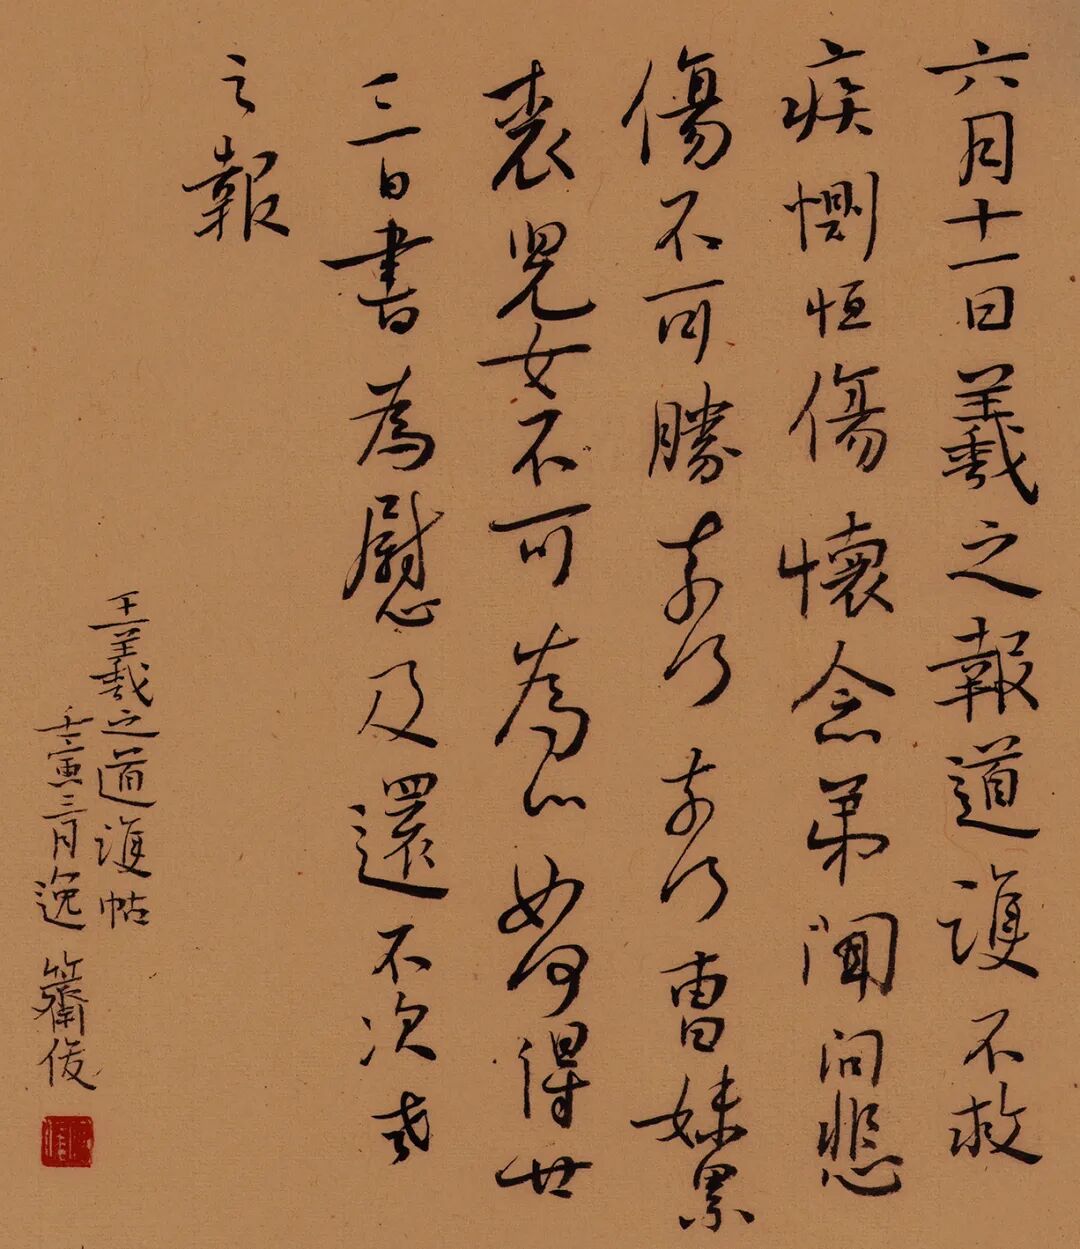 六月十一日羲之報道護不救
疾惻怛傷懷念弟聞問悲
傷不可勝奈何奈何曹妹累
喪兒女不可為心如何得廿
三日書為慰及還不次羲
之報
王羲之道護帖
壬寅三月逸俊